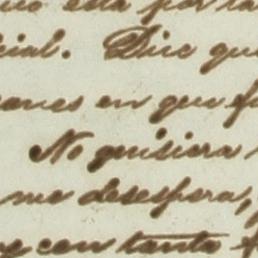 está por la
cial. Dice que
ones en que fu
No quisiera
me desespera,
y con tanto